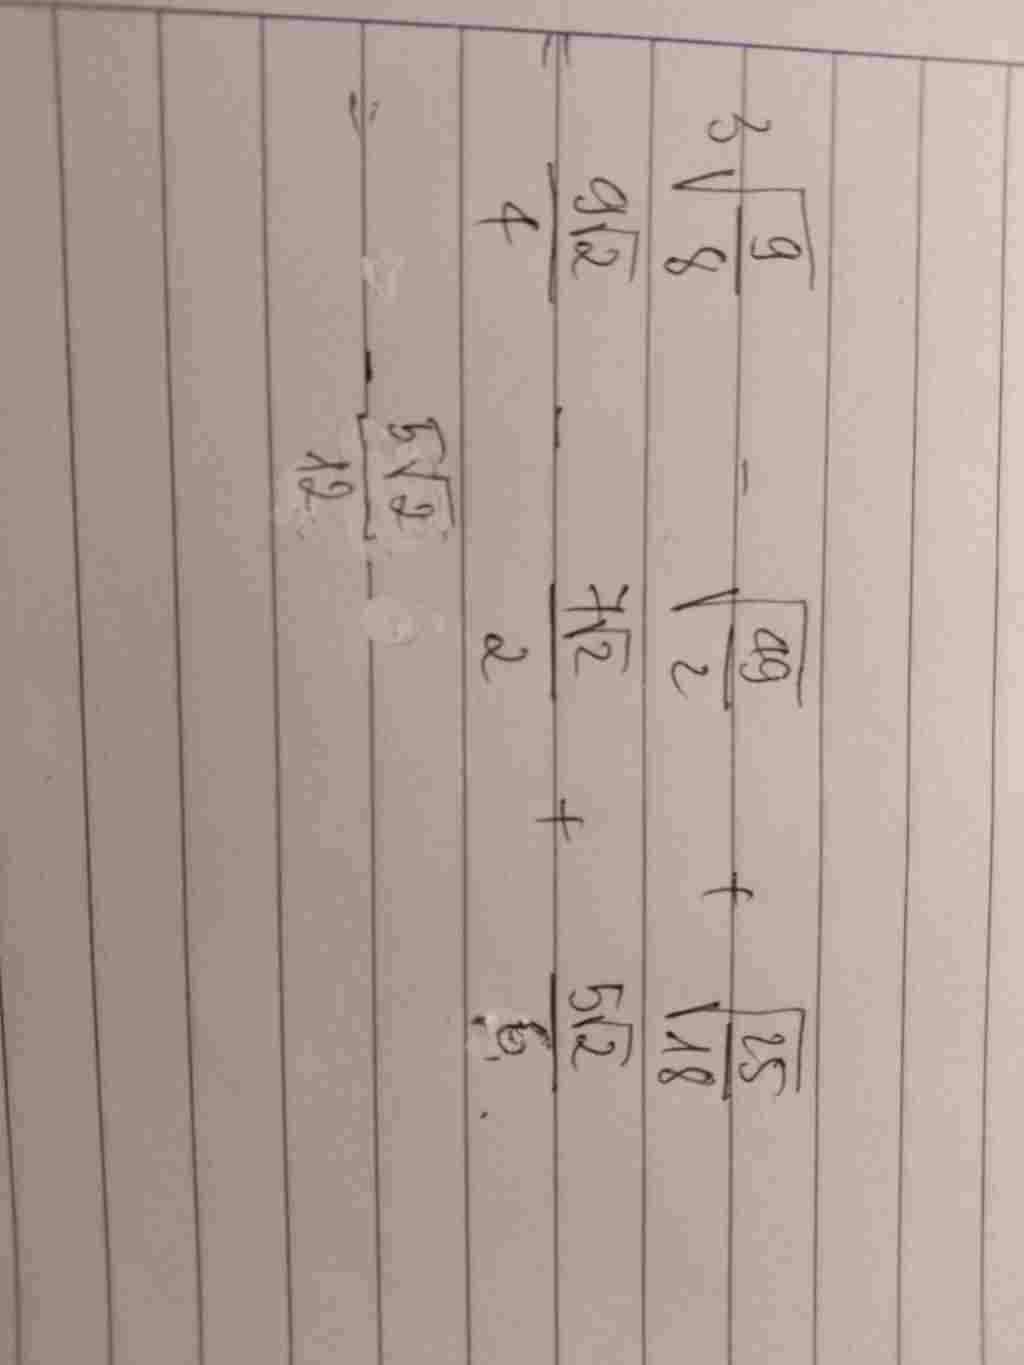 3√(9/8) - √(49/2) + √(25/18)
= 9√2/4 - 7√2/2 + 5√2/6
= - 5√2/12